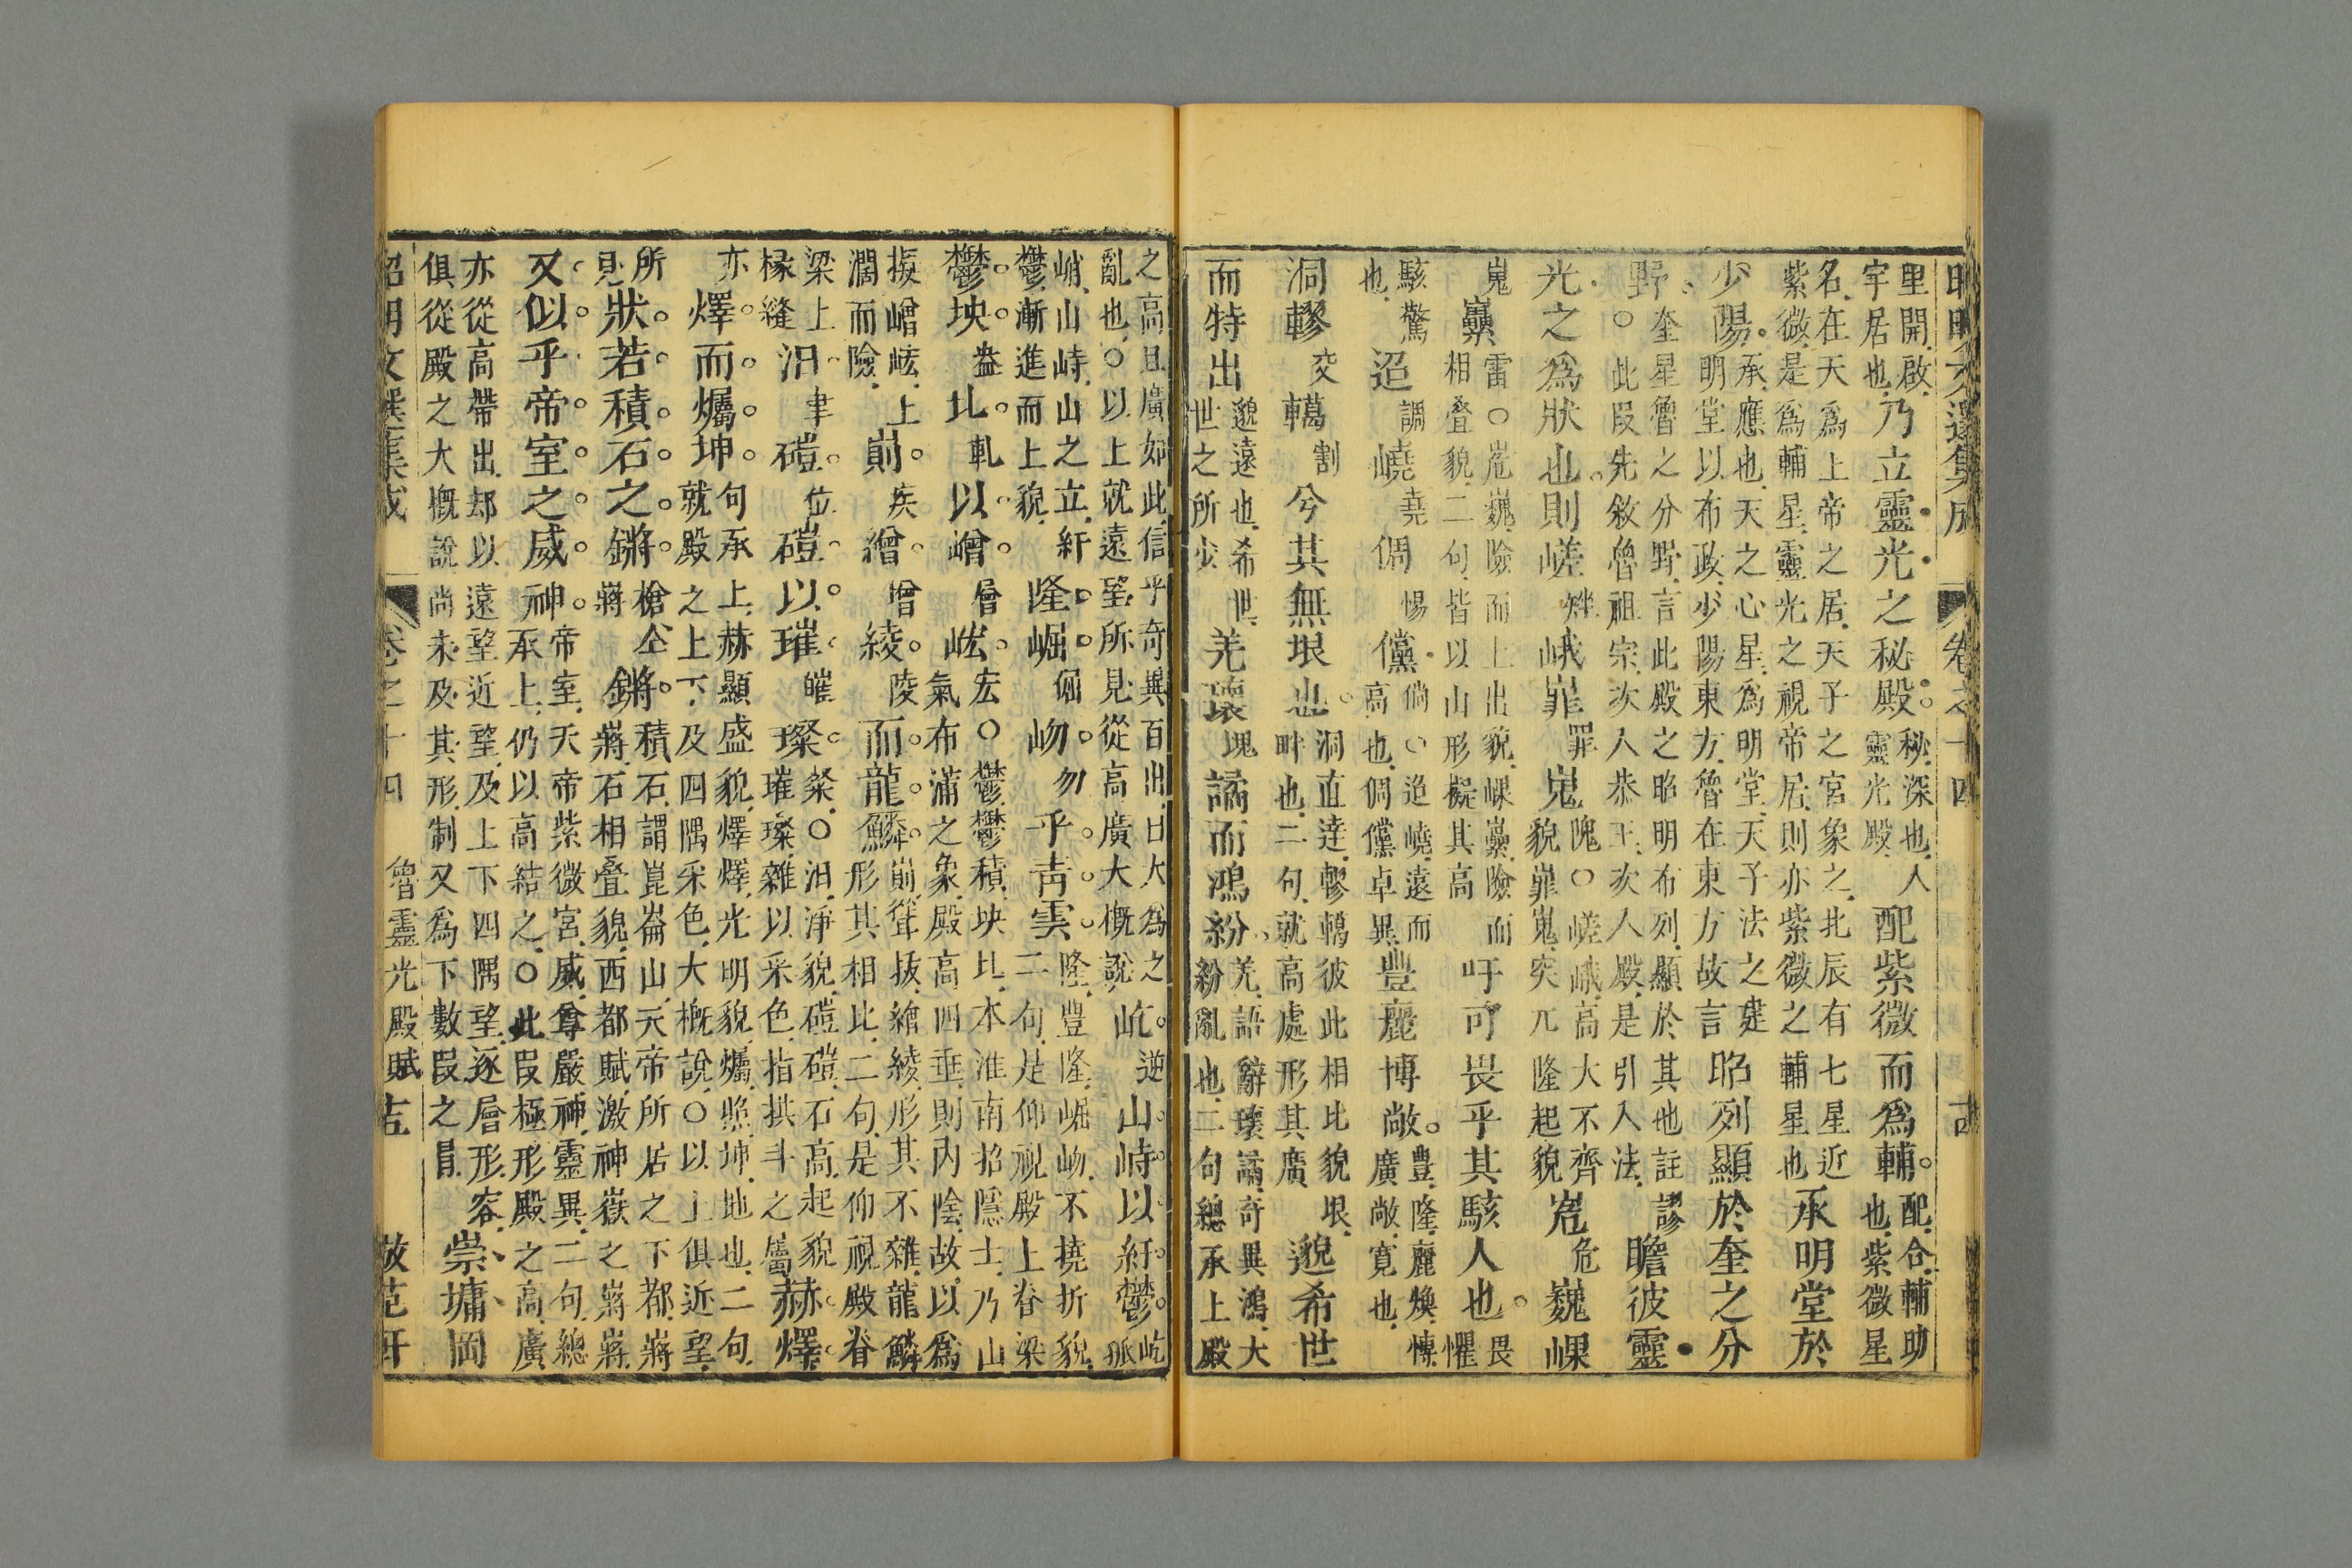 昭明文選集成　卷之十四
里開啟
宇居也
乃立靈光之秘殿
秘深也人
靈光殿
配紫微而為輔
配合輔助
也紫微星
名在天為上帝之居天子之宮象之北辰有七星近
紫微是為輔星靈光之視帝居則亦紫微之輔星也
承明堂於
少陽
承應也天之心星為明堂天子法之建
明堂以布政少陽東方魯在東方故言
昭列顯於奎之分
野
奎星魯之分野言此殿之昭明布列顯於其也註謬
○此段先敘魯祖宗次入恭王次入殿是引入法
瞻彼靈
光之為狀也則嵯矬峨嶵罪嵬
隗○嵯峨高大不齊
貌嶵嵬突兀隆起貌
峞危巍㠁
嵬㠥
雷○峞巍險而上出貌㠁㠥險而
相叠貌二句皆以山形擬其高
吁可畏乎其駭人也
畏
懼
駭驚
也
迢調嶢堯倜惕儻
倘○迢嶢遠而
高也倜儻卓異
豐麗博敞
豐隆麗煥博
廣敞寬也
洞轇交轕割兮其無垠也
洞直達轇轕彼此相比貌垠
畔也二句就高處形其廣
邈希世
而特出
邈遠也希世
世之所少
羌瓌瑰譎而鴻紛
羌語辭瓌譎奇異鴻大
紛亂也二句總承上殿
之高且廣如此信乎奇異百出曰大為之
亂也○以上就遠望所見從高廣大概說
屹逆山峙以紆鬱
屹
孤
峭山峙山之立紆
鬱漸進而上貌
隆崛倔岉勿乎青雲
隆豐隆崛岉不撓折貌
二句是仰視殿上脊梁
鬱坱盎圠軋以嶒層峵
宏○鬱鬱積坱圠本淮南招隱士乃山
氣布滿之象殿高四垂則內陰故以為
擬嶒峵上
濶而險
崱疾繒增綾陵而龍鱗
崱聳拔繒綾形其不雜龍鱗
形其相比二句是仰視殿脊
梁上
椽縫
汨聿磑位磑以璀皠璨
粲○汨淨貌磑磑石高起貌
璀璨雜以采色指拱斗之屬
赫燁
亦燁而爥坤
句承上赫顯盛貌燁燁光明貌爥照坤地也二句
就殿之上下及四隅采色大概說○以上俱近望
所
見
狀若積石之鏘
槍仝
蔣
鏘
積石謂崑崙山天帝所居之下都蔣
蔣石相叠貌西都賦激神嶽之蔣蔣
又似乎帝室之威神
帝室天帝紫微宮威尊嚴神靈異二句總
承上仍以高結之○此段極形殿之高廣
亦從高帶出却以遠望近望及上下四隅望逐層形容
俱從殿之大概說尚未及其形制又為下數段之冒
崇墉岡
昭明文選集成　卷之十四　魯靈光殿賦